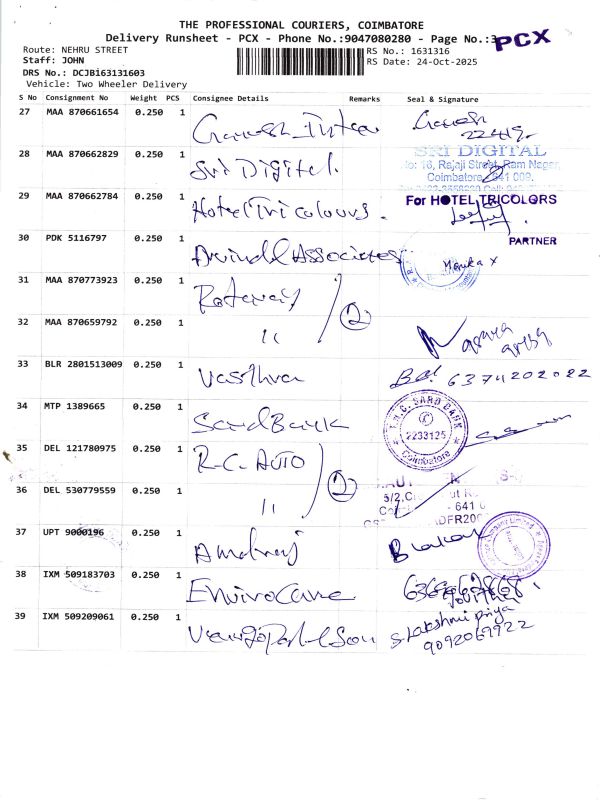 THE PROFESSIONAL COURIERS, COIMBATORE
Delivery Runsheet - PCX - Phone No.:9047080280 - Page No.:3
PCX
Route: NEHRU STREET
RS No.: 1631316
Staff: JOHN
RS Date: 24-Oct-2025
DRS No.: DCJB163131603
Vehicle: Two Wheeler Delivery
S No Consignment No Weight PCS Consignee Details Remarks Seal & Signature
27 MAA 870661654 0.250 1 Ganesh
Ganesh
28 MAA 870662829 0.250 1 Sri Digital.
SRI DIGITAL
No: 16, Rajaji Street, Ram Nagar,
Coimbatore - 641 009.
29 MAA 870662784 0.250 1 Hotel Tricolours.
For HOTEL TRICOLORS
PARTNER
30 PDK 5116797 0.250 1 Arvind Associates
Monika
31 MAA 870773923 0.250 1
32 MAA 870659792 0.250 1 "
2
33 BLR 2801513009 0.250 1 Vasthra
6374202022
34 MTP 1389665 0.250 1 Sard Bank
SARD BANK
2233125
Coimbatore
35 DEL 121780975 0.250 1 R.C. AUTO
36 DEL 530779559 0.250 1 "
2
- 641 0
37 UPT 9000196 0.250 1
38 IXM 509183703 0.250 1 Enviro Care
39 IXM 509209061 0.250 1
S. Lakshmi priya
9092069922